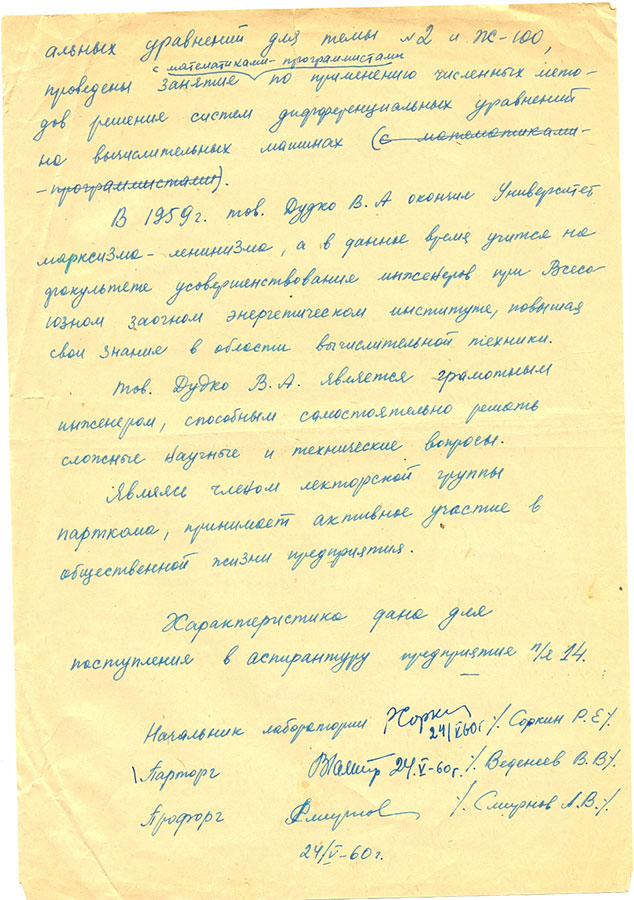 альных уравнений для темы №2 и Ж-100,
с математиками-программистами
проведены занятие по применению численных мето-
дов решения систем дифференциальных уравнений
на вычислительных машинах (с математиками-
-программистами).
В 1959г. тов. Дудко В.А окончил Университет
марксизма-ленинизма, а в данное время учится на
факультете усовершенствования инженеров при Всесо
юзном заочном энергетическом институте, повышая
свои знания в области вычислительной техники.
тов. Дудко В.А. является грамотным
инженером, способным самостоятельно решать
сложные научные и технические вопросы.
Являясь членом лекторской группы
парткома, принимает активное участие в
общественной жизни предприятия.
Характеристика дана для
поступления в аспирантуру предприятие п/я 14.
Начальник лаборатории 24/V60г. /. Соркин Р.Е/.
Парторг 24.V-60г. /. Веденеев В.В/.
Профорг Смирнов /. Смирнов А.В./.
24/V-60г.